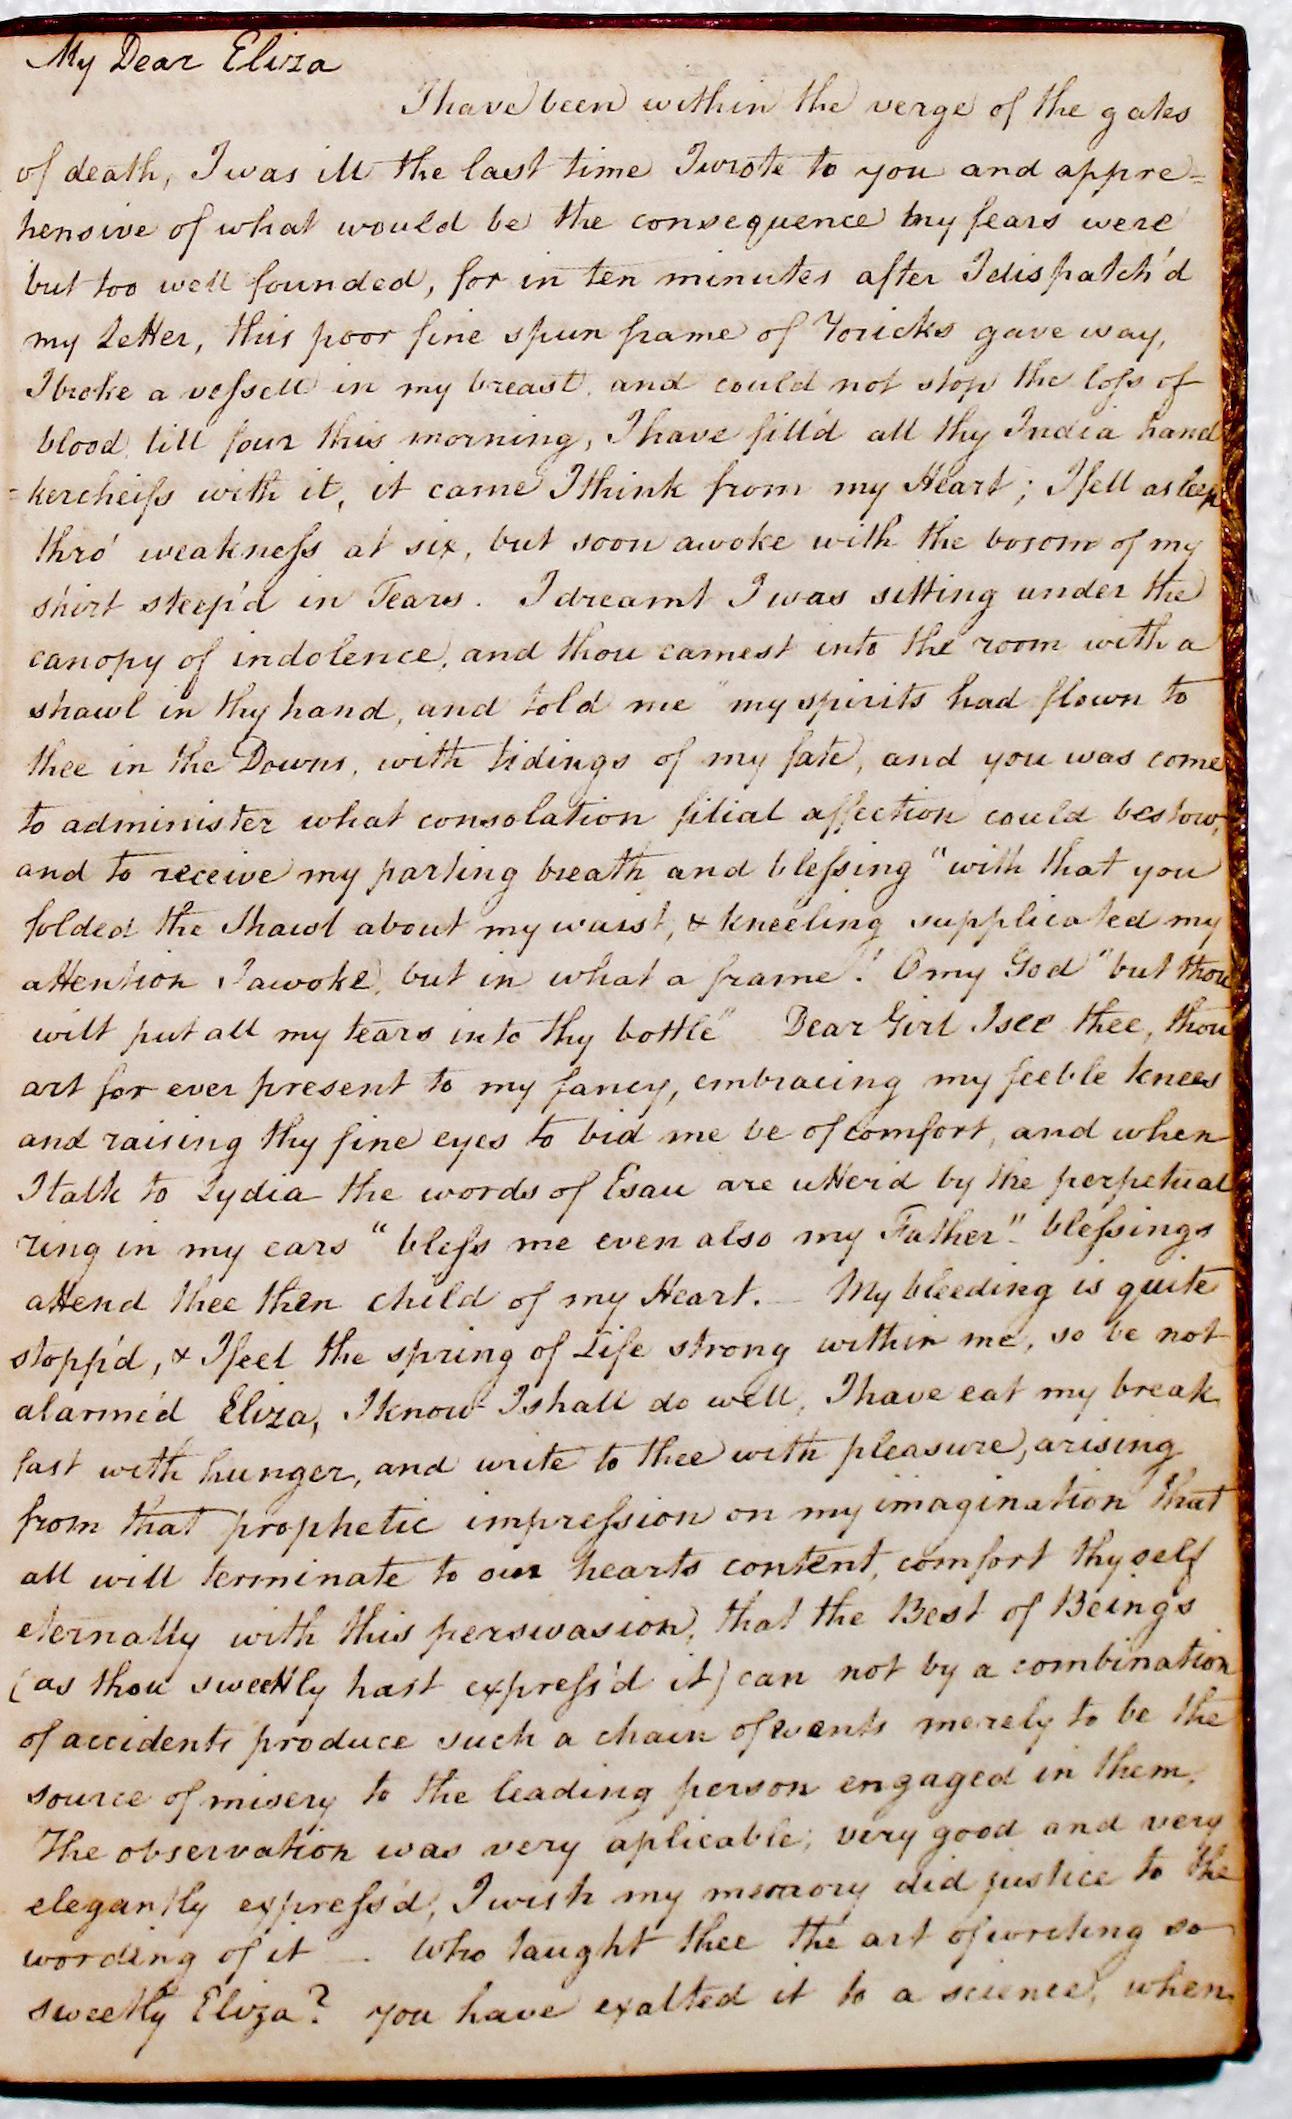 My Dear Eliza
I have been within the verge of the gates
of death, I was ill the last time I wrote to you and appre=
hensive of what would be the consequence my fears were
but too well founded, for in ten minutes after I dispatch'd
my Letter, this poor fine spun frame of Yoricks gave way,
I broke a vefsell in my breast. and could not stop the lofs of
blood, till four this morning, I have fill'd all thy India hand
=kercheifs with it, it came I think from my Heart; I fell asleep
thro' weaknefs at six, but soon awoke with the bosom of my
shirt steep'd in Tears. I dreamt I was sitting under the
canopy of indolence, and thou camest into the room with a
shawl in thy hand, and told me "my spirits had flown to
thee in the Downs, with tidings of my fate, and you was come
to administer what consolation filial affection could bestow,
and to receive my parting breath and blefsing "with that you
folded the Shawl about my waist, & kneeling supplicated my
attention I awoke, but in what a frame! O my God "but thou
wilt put all my tears into thy bottle" Dear Girl I see thee, thou
art for ever present to my fancy, embracing my feeble knees
and raising thy fine eyes to bid me be of comfort, and when
I talk to Lydia the words of Esau are utter'd by the perpetual
ring in my ears "blefs me even also my Father". blefsings
attend thee then child of my Heart. _ My bleeding is quite
stopp'd, & I feel the spring of Life strong within me, so be not
alarme'd Eliza, I know I shall do well, I have eat my break
fast with hunger, and write to thee with pleasure, arising
from that prophetic imprefsion on my imagination that
all will terminate to our hearts content, comfort thyself
eternally with this perswasion, that the Best of Beings
(as thou sweetly hast exprefs'd it) can not by a combination
of accidents produce such a chain of events merely to be the
source of misery to the leading person engaged in them.
The observation was very aplicable, very good and very
elegantly exprefs'd, I wish my memory did justice to the
wording of it _. Who taught thee the art of writing so
sweetly Eliza? you have exalted it to a science, when